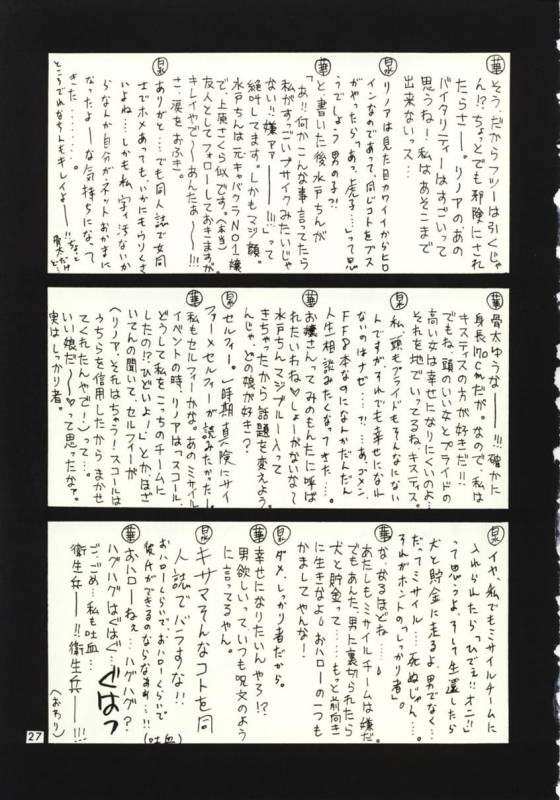 華 そう、だからフツーは引くじゃ
ん!?ちょっとでも邪険にされ
たらさー。リノアのあの
バイタリティーはすごいって
思うね!私はあそこまで
出来ないっス…
泉 リノアは見た目カワイイからヒロ
インなのであって、同じコトをブス
がやったら「あっ虎子…」って思
うでしょう男の子?!
華 と、書いた後水戸ちんが
「あ!!何かこんな事言ってたら
私がすっごいブサイクみたいじゃ
ない!!嫌アアーー!!!」って
絶叫してます。しかもマジ顔。
水戸ちんは元キャバクラNO1嬢
で、上原さくら似です。(本当)
友人としてフォローしておきますが。
キレイやで〜あんたぁ〜!!!
さ、涙をおふき。
泉 ありがと…でも同人誌で女同
士でホメあっても、いかにもウリくさ
いよね…しかも私実汚ないか
らなんか自分がネットおかまに
なったよーな気持ちになって
きた………
ところでれなちんもキレイよー!!
華 骨太ゆうなーー!!!確かに
身長170cmだが。なので、私は
キスティスの方が好きだ!!
でもね、頭のいい女とプライドの
高い女は幸せになりにくいのよ…
それを地でいってるね、キスティス。
泉 私、頭もプライドもそんなにない
んですがそれでも幸せになれ
ないのはナゼ…?!…あ、ゴメン、
FF8本なのになんかだんだん
人生相談みたくなってきた…。
華 お嬢さんってみのもんたに呼ば
れたいわね♡しょーがないな〜
水戸ちんマジブルー入って
きちゃったから話題を変えよう。
んじゃ、どの娘が好き?
泉 セルフィー。一時期真険にサイ
ファーメセルフィーが読みたかった。
華 私もセルフィーかな。あのミサイル
イベントの時、リノアは「スコール、
どうして私をこっちのチームに
したの!?ひどいよ!」とかほざ
いてんの聞いて、セルフィーが
「リノア、それはちゃう!スコールは
うちらを信用したからまかせ
てくれたんやでー!」って…。
いい娘だ〜♡って思ったなァ。
実はしっかり者。
泉 イヤ、私でもミサイルチームに
入れられたら「ひでェ!!オニ!!」
って思うっよ、そして生還したら
犬と貯金に走るよ、男でなく…
だってミサイル…死ぬじゃん…。
それがホントの「しっかり者」。
華 な、なるほどね…
あたしもミサイルチームは嫌だ。
でもあんた、男に裏切られたら
犬と貯金って……もっと前向き
に生きなよ!おハローの一つも
かましてやんな!
泉 ダメ、しっかり者だから。
華 幸せになりたいんやろ!?
男欲しいって、いつも呪文のよう
に言ってるやん。
泉 キサマそんなコトを同
人誌でバラすな!!
おハローしらいで、おハローくらいで
彼Aができるのならなぁ……!!
(吐血)
華 おハローねえ、ハグハグ?
ハグハグはぐはぐ…ぐはっ
ご、ごめ…私も吐血…
衛生兵ー!!!衛生兵ー!!!
(おわり)
27